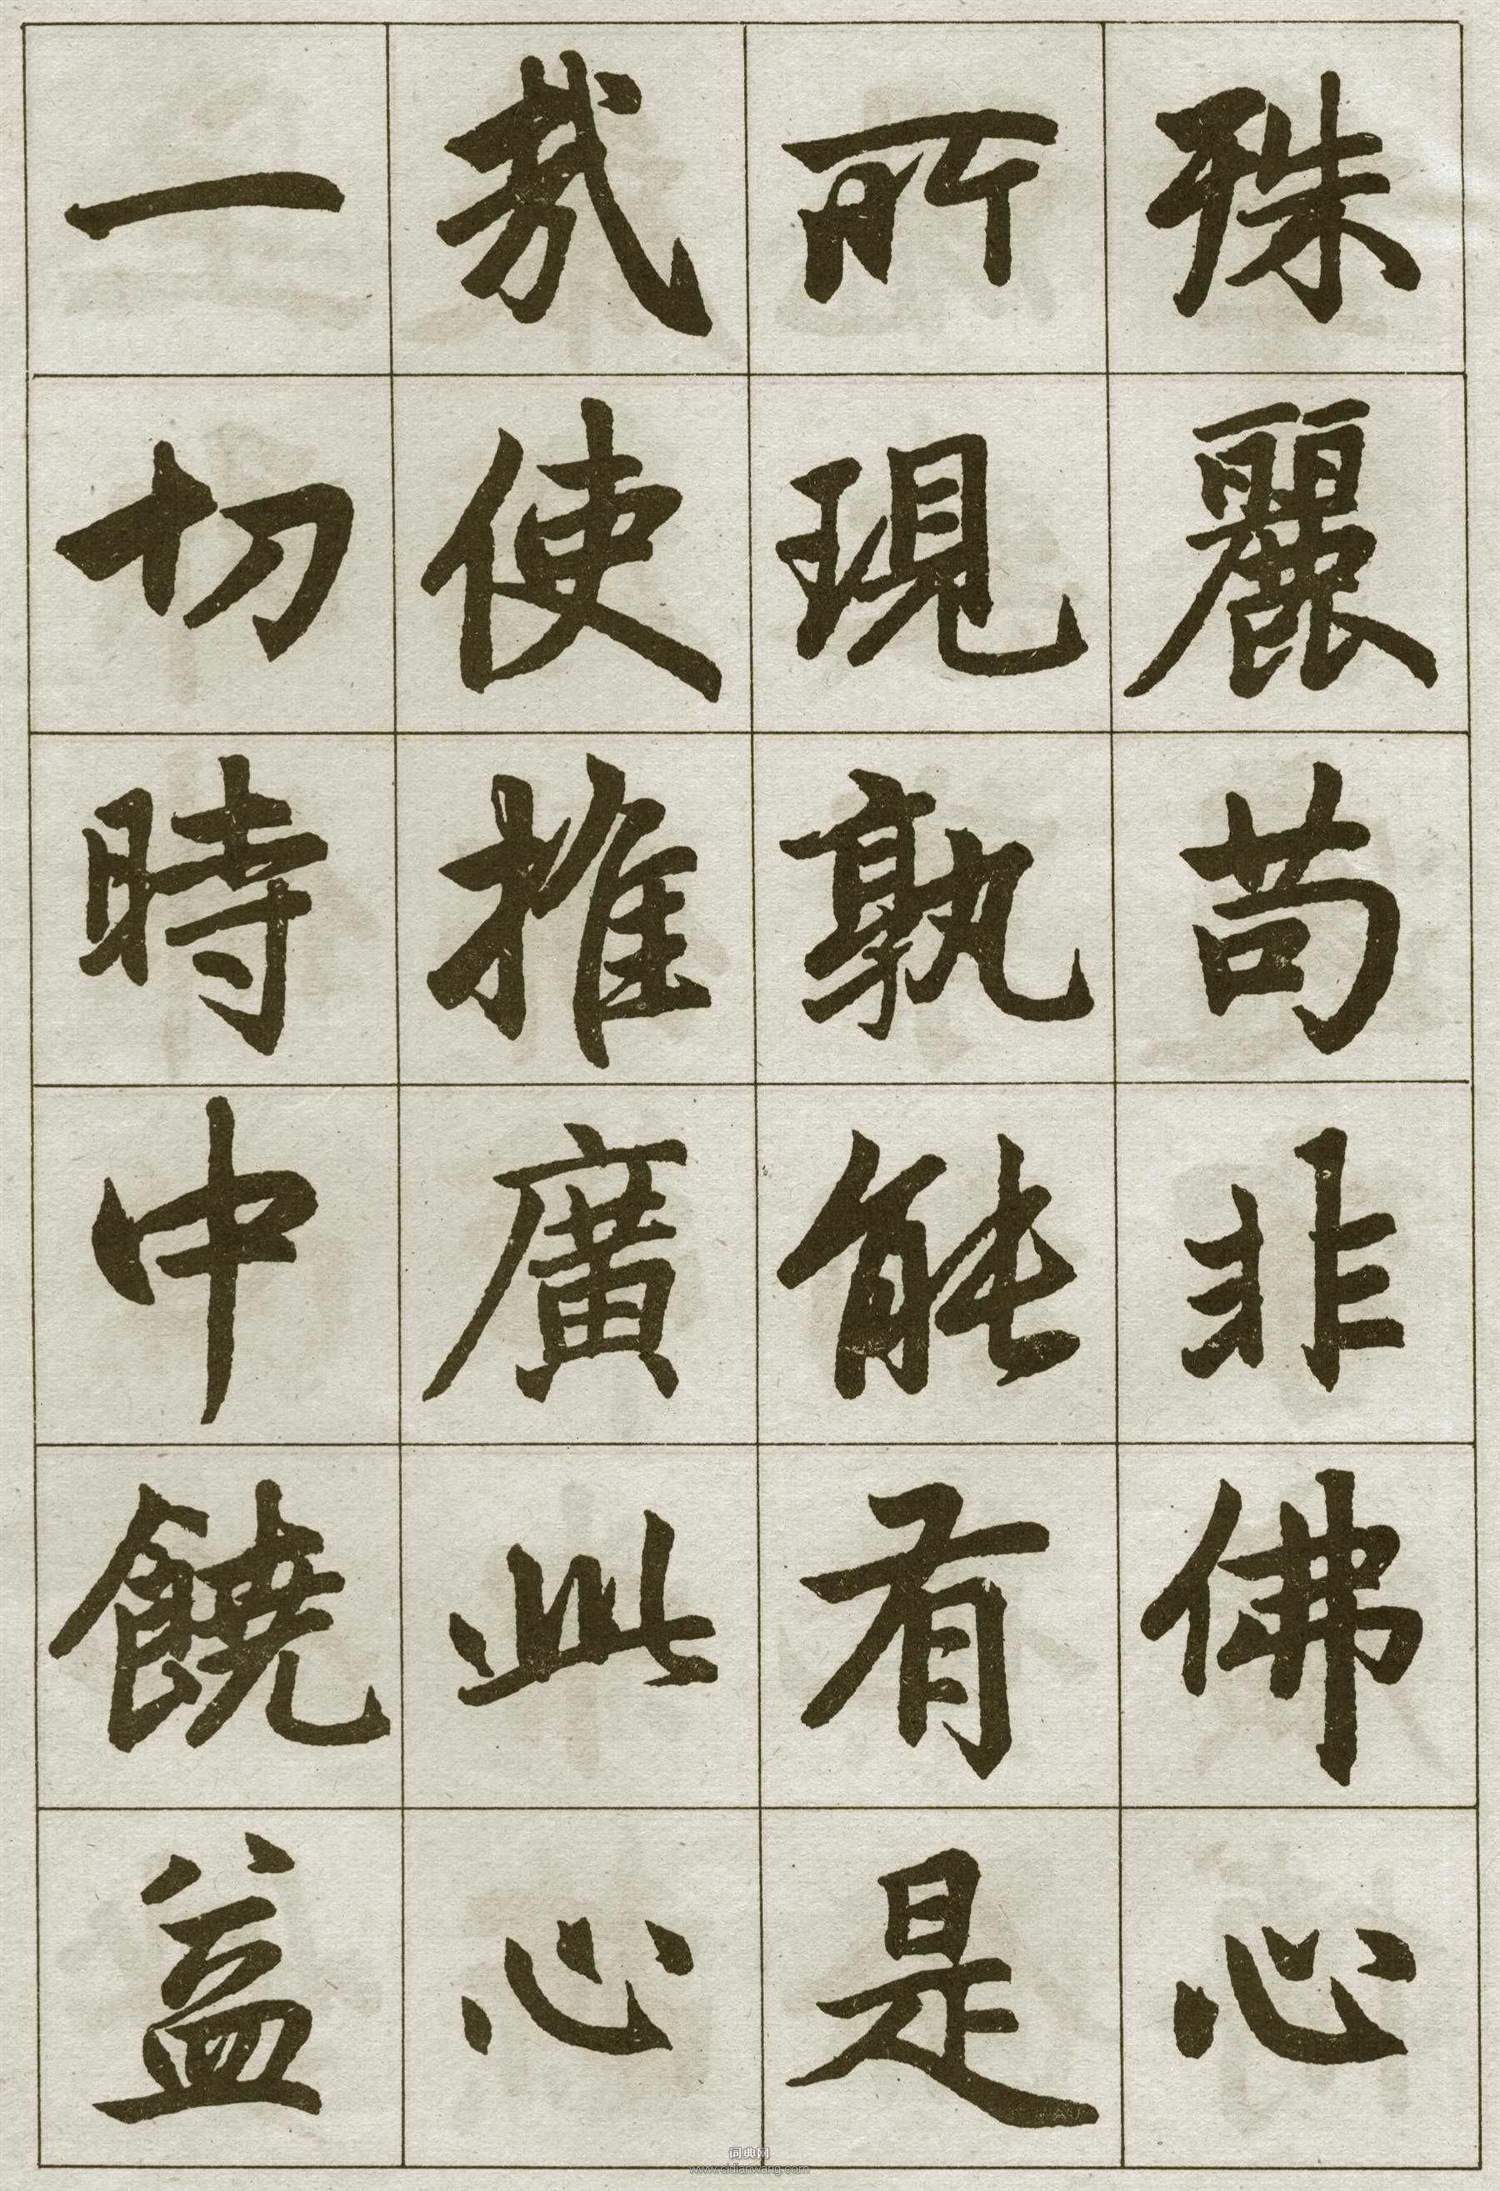 殊麗苟非佛心
所現孰能有是
哉使推廣此心
一切時中饒益
词典网
www.cidianwang.com